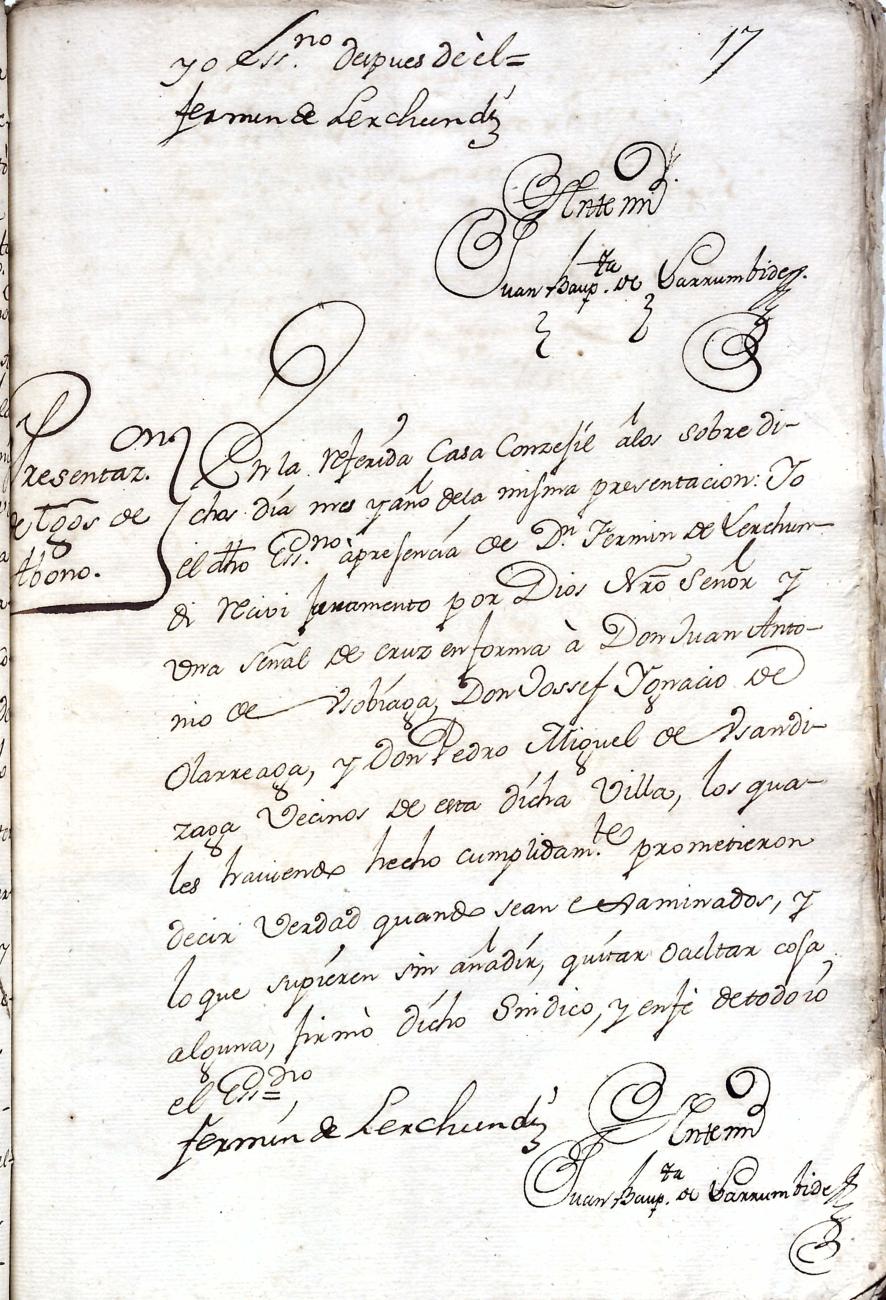 17
yo Ess.no despues de èl=
Fermin de Lerchundi
Ante mi
Juan Baup.ta de Larrumbide
Presentaz.on
de tgõs de
Abono.
En la Referida Casa Conzejil âlos sobre di-
chos día mes y año dela misma presentacion: Yo
el dho Ess.no àpresencia de Dn. Fermin de Lerchun-
di Recivi juramento por Dios Nrõ Señor y
una señal de cruz en forma à Don Juan Anto-
nio de Ysobiaga, Don Jossef Ygnacio de
Olarreaga, y Don Pedro Miguel de Ysandi-
zaga Vecinos de esta dícha Villa, los qua-
les haviendo hecho cumplidam.te prometieron
decir Verdad quando sean examinados, y
lo que supíeren sin añadír, quítar ocultar cosa
alguna, firmò dícho Sindico, y enfé detodo ió
el Ess=dno
Fermín de Lerchundi
Ante mi
Juan Baup.ta de Larrumbide